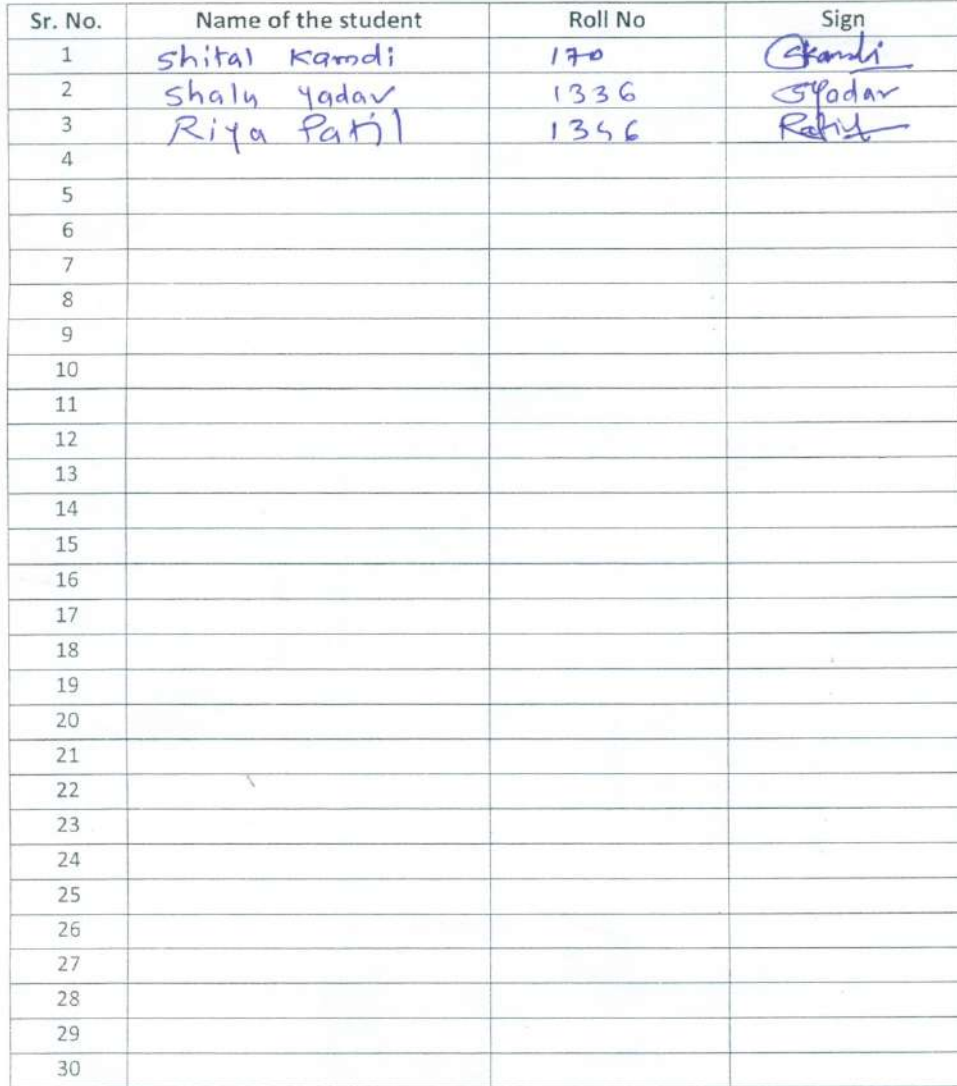 Sr. No. Name of the student Roll No Sign
1 Shital Kamdi 170 Skamdi
2 Shalu Yadav 1336 SYadav
3 Riya Patil 1346 RPatil
4
5
6
7
8
9
10
11
12
13
14
15
16
17
18
19
20
21
22
23
24
25
26
27
28
29
30